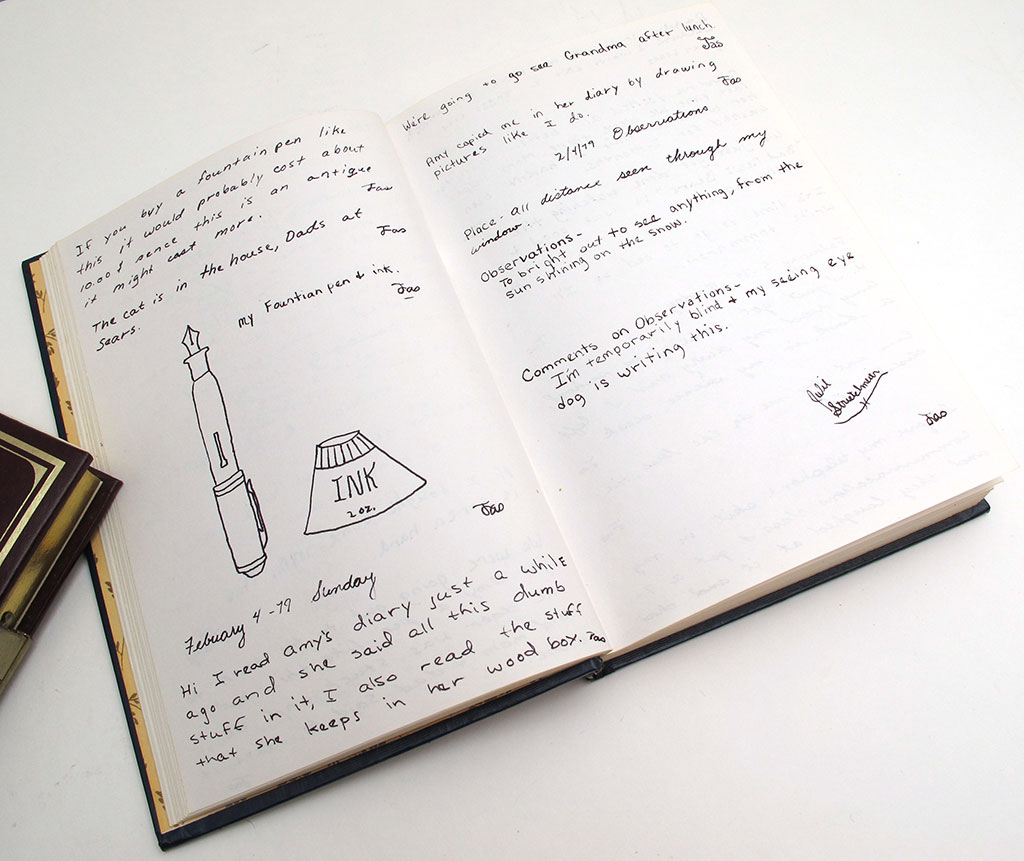 If you buy a fountain pen like
this it would probably cost about
10.00$ sence this is an antique
it might cost more. Jao
The cat is in the house, Dads at
Sears. Jao
my Fountian pen & ink.
Jao
INK
2 oz.
Jao
February 4-79 Sunday
Hi I read amy's diary just a while
ago and she said all this dumb
stuff in it, I also read the stuff
that she keeps in her wood box. Jao
We're going to go see Grandma after lunch
Jao
Amy copied me in her diary by drawing
pictures like I do. Jao
2/4/79 Observations
Place- all distance seen through my
window.
Observations-
To bright out to see anything, from the
sun shining on the snow.
Comments on Observations-
I'm temporarily blind & my seeing eye
dog is writing this.
Jao